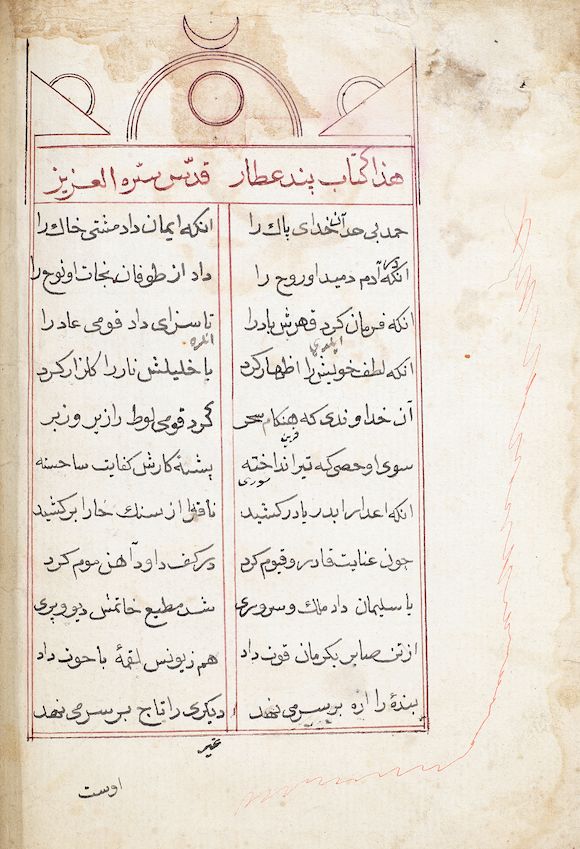 هذا كتاب پند عطار قدّس سرّه العزيز
حمد بی حد آن خدای پاك را انكه ایمان داد مشتی خاك را
انكه در آدم دمید او روح را داد از طوفان نجات او نوح را
انكه فرمان كرد قهرش باد را تا سزای داد قومی عاد را
انكه لطف خویش را اظهار كرد با خلیلش نار را كلزار كرد
آن خداوندی كه هنكام سحر كرد قومی لوط را زیر و زبر
سوی او خصمی كه تیر انداخته پشهٔ كارش كفایت ساخته
انكه اعدا را بدریا در كشید ناقه از سنك خارا بر كشید
چون عنایت قادر و قیوم كرد در كف داود آهن موم كرد
با سلیمان داد ملك و سروری شد مطیع خاتمش دیو و پری
از تن صابر بكرمان قوت داد هم ز یونس لقمهٔ با حوت داد
بندهٔ را اره بر سر می نهد دیكری را تاج بر سر می نهد
اوست